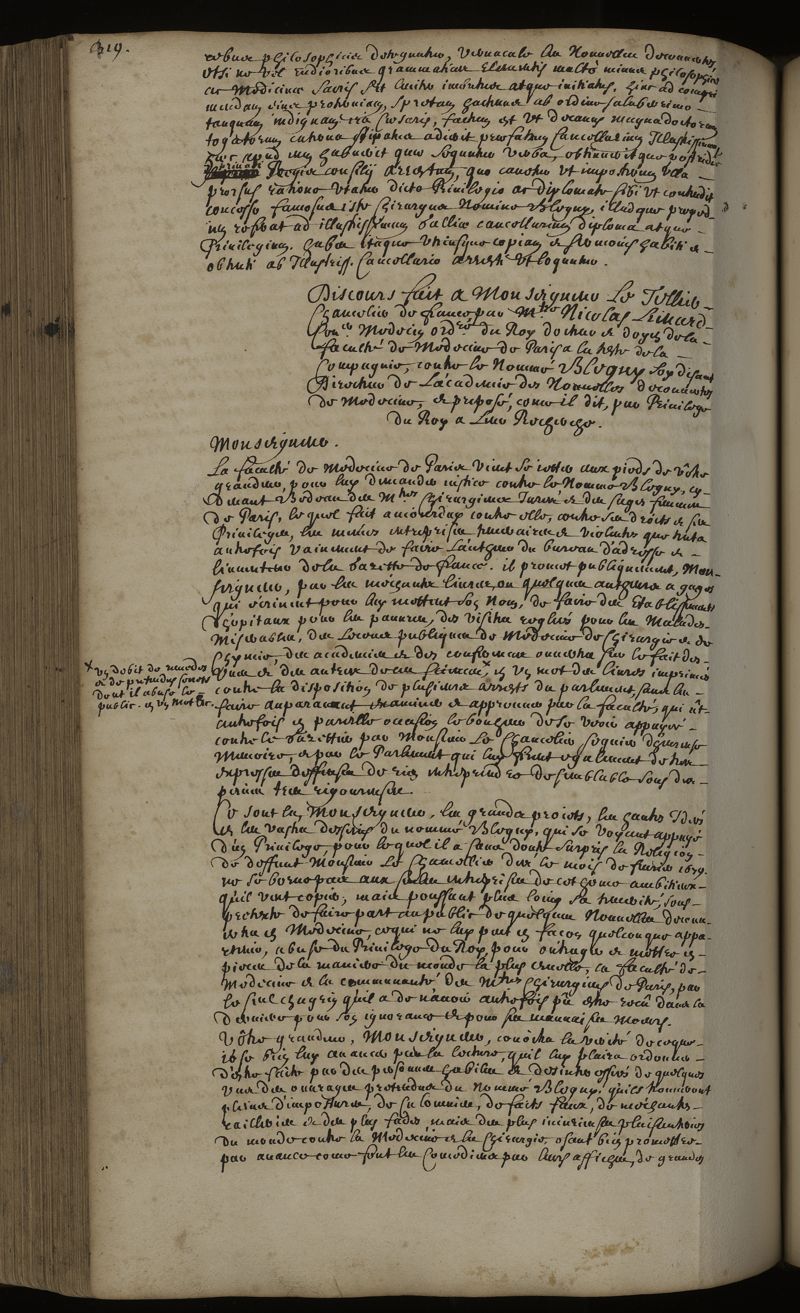 319.
rebus philosophicis detegendis, vernacule les Nouvelles decouvertes
et si ne vel rudioribus grammaticae Elementis multo minus philosophiae
ac Medicinae sacris sit initiatus, hinc ad compri
mendam
tanquam indignam
togatorum caterva stipatus adivit praefatum Cancellarium Illustrissimum
hac apud eum habuit quae sequuntur verba, obtinuitque postridie
Regis consilij arrestum, quo cautum ut impostorum
prorsus ratione dicto Privilegio ac diplomate sibi ut contendit
concesso famosus iste chirurgus Nomine Blegny, illudque proped
iem referat ad illustrissimum Galliae cancellarium diploma atque
Privilegium. habes itaque utriusque copiam et sermonis habiti et
obtenti ab Illustriss. Cancellario arresti ut sequuntur.
Discours fait a Monseigneur Le Tellier
Chancelier de france par Mtre Nicolas Lienard
Conser Medecin ordre du Roy docteur et doyen de la
faculté de Medecine de Paris a la teste de la
Compagnie, contre le Nommé Blegny soy disant
Directeur de L'academie des Nouvelles decouvertes
de Medecine, et preposé, comme il dit, par Privilege
du Roy a Leur Recherche.
Monseigneur.
La faculté de Medecine de Paris vient se ietter aux pieds de vôtre
grandeur, pour luy demander iustice contre le Nommé Blegny, cy
devant Bedeau des Mtres Chirurgiens Jurez et des sages femmes
de Paris, lequel fait auiourduy contre elle, contre ses droits et ses
Privileges, les mêmes entreprises temeraires et violentes que tenta
autrefois vainement de faire L'autheur du bureau d'adresse et
l'inventeur de la Gazette de france. il promet publiquement, Mon-
seigneur, par les meschants livres, que quelques autheurs a gages
qui ecrivent pour luy mettent sous son Nom, de faire des Etablissements
d'hopitaux pour les pauvres, des visites reglées pour les Malades
Miserables, des Lecons publiques de Medecine de Chirurgie et de
Chymie, des academies et des conferences ouvertes sur le fait des
uns et des autres de ces sciences x, en un mot des livres imprimés
x un debit de remedes
et de pretendus secrets
dont il abuse le
public. en un mot &c.
contre la disposition de plusieurs arrests du parlement, sans les
faire auparavant examiner et approuver par la faculté; qui eût
autrefois en pareille occasion le bonheur de se voir appuyée
contre le Gazettier par Monsieur Le Chancelier Seguier d'heureuse
Memoire, et par le Parlement qui luy firent egalement de tres
expresses deffenses de rien entreprendre de semblable sous des
peines tres rigoureuses.
Ce sont la, Monseigneur, les grands proiets, les hautes Idées
et les vastes desseins du nommé Blegny, qui se voyant appuyé
d'un Privilege, pour lequel il a sans doute surpris la Religion
de deffunt Monsieur Le Chancelier dez le mois de fevrier 1679.
ne se borne pas aux seules entreprises de cet homme ambitieux
qu'il veut copier, mais poussant plus loing sa temerité, sous
pretexte de faire part au public de quelques Nouvelles decou-
vertes en Medecine, ce qui ne luy peut en facon quelconque appa-
rtenir, abuse du Privilege du Roy, pour outrager et mettre en
pieces de la maniere du monde la plus cruelle, la faculté de
Medecine et la communauté des Mtres Chirurgiens de Paris, par
le seul chagrin qu'il a de n'avoir autrefois pû estre receu dans la
derniere pour son ignorance et pour ses mauvaises Moeurs.
Vôtre grandeur, Monseigneur, connoistra la verité de ce que
ie
d'estre faite par des personnes habiles et desinteressées de quelques
uns des ouvrages pretendus du Nommé Blegny, qu'ils trouveront
pleins d'impostures, de calomnies, de faits faux, de meschantes
railleries et des plus fades, mais des plus iniurieuses plaisanteries
du monde contre la Medecine et la Chirurgie, osant bien promettre
par avance comme font les Comediens par leurs affiches, de grandes